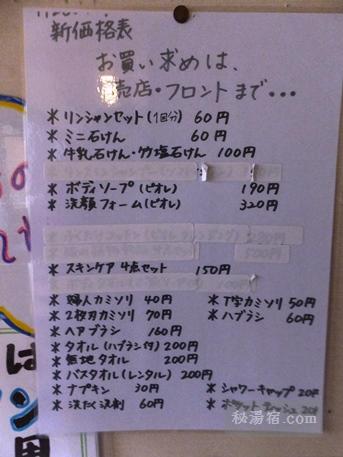 新価格表
お買い求めは、
売店・フロントまで・・・
* リンシャンセット(1回分) 60円
* ミニ石けん 60円
* 牛乳石けん・竹塩石けん 100円
* ボディソープ(ビオレ) 190円
* 洗顔フォーム(ビオレ) 320円
* スキンケア 4点セット 150円
* 婦人カミソリ 40円 * T字カミソリ 50円
* 2枚刃カミソリ 70円 * ハブラシ 60円
* ヘアブラシ 160円
* タオル(ハブラシ付) 200円
* 無地タオル 200円
* バスタオル(レンタル) 200円
* ナプキン 30円 * シャワーキャップ 20円
* 洗たく洗剤 60円 * ポケットティッシュ 20円
秘湯宿.com